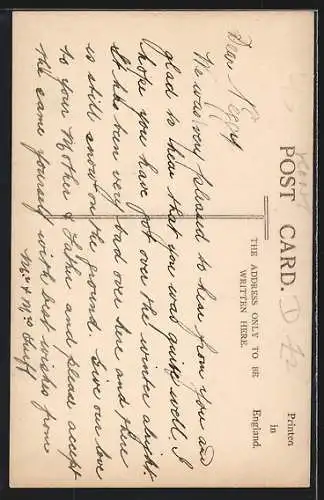 POST CARD.
THE ADDRESS ONLY TO BE
WRITTEN HERE.
Printed
in
England.
Dear Peggy
We was very pleased to hear from you and
glad to hear that you was quite well. I
hope you have got over the winter alright
It has been very bad over here and there
is still snow on the ground. Give our love
to your Mother & Father and please accept
the same yourself with best wishes from
Mr & Mrs
D 12